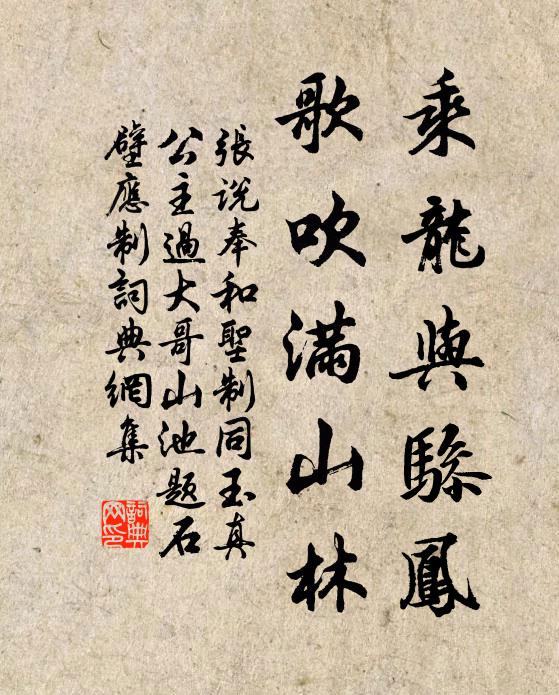 乘龍與驂鳳
歌吹滿山林
張說奉和聖制同玉真
公主過大哥山池題石
壁應制詞典網集
詞典
网印